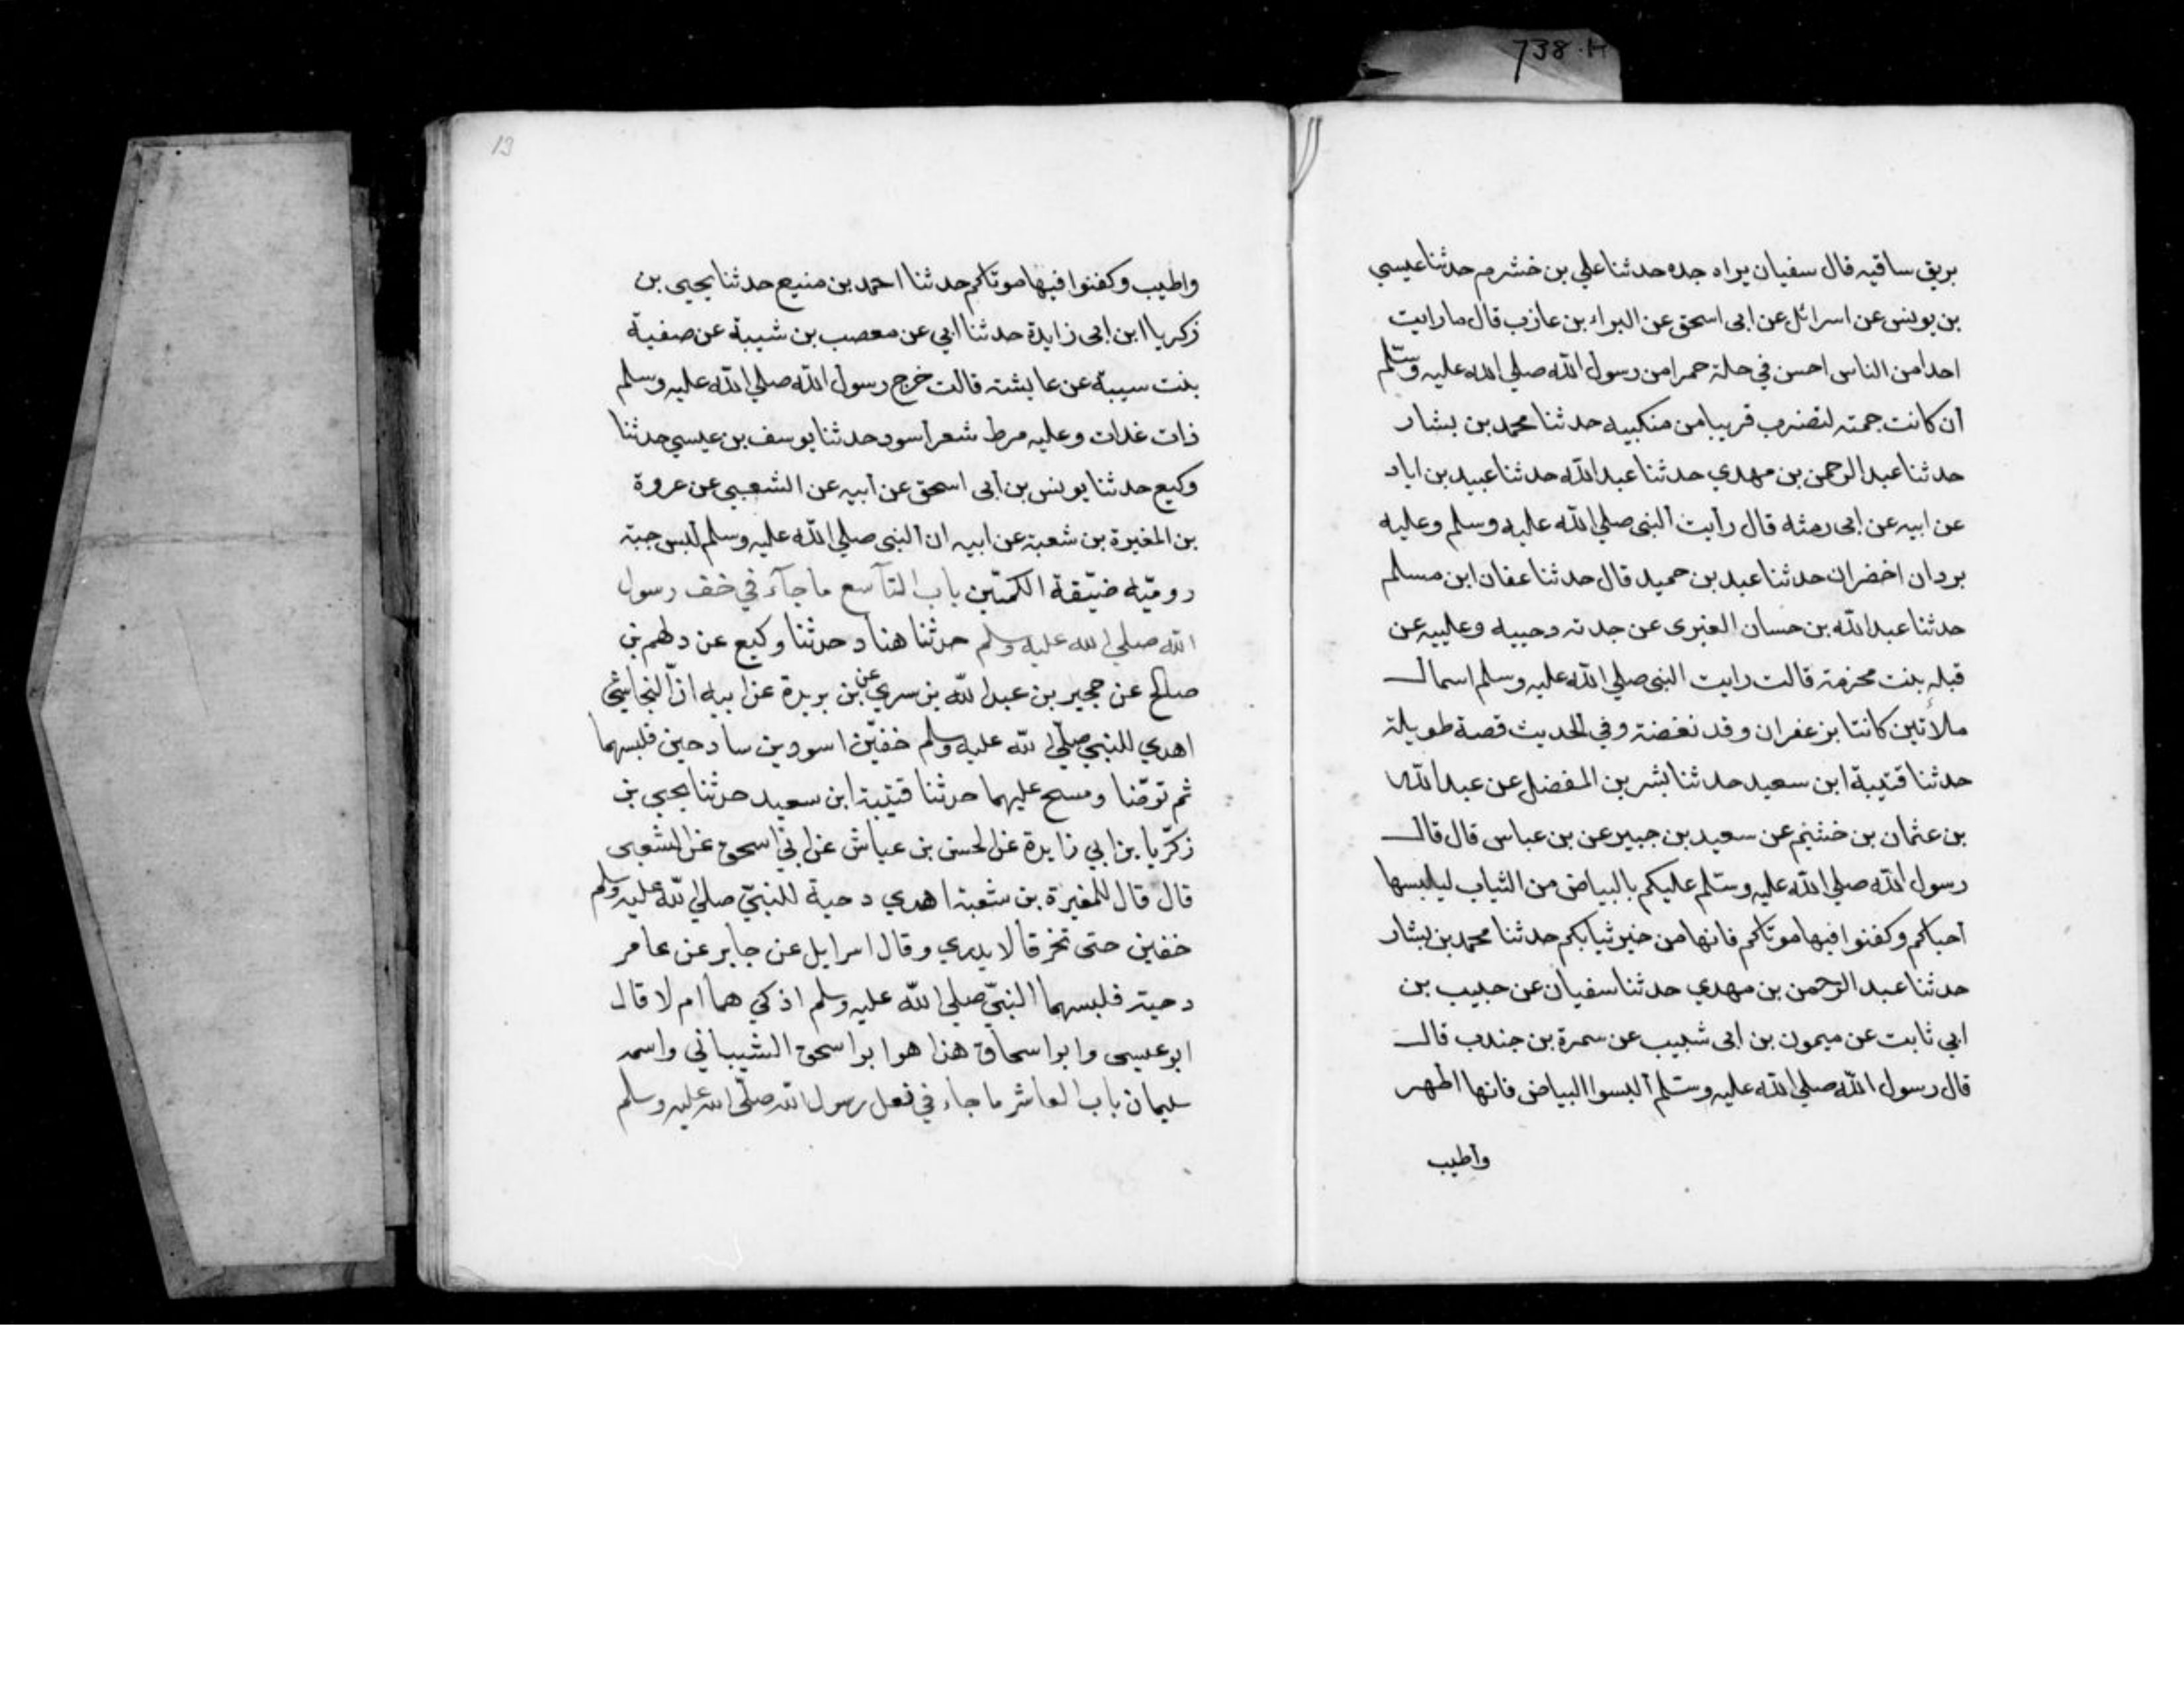 738.H
بريق ساقيه قال سفيان يراه جده حدثنا علي بن خشرم حدثنا عيسي
بن يونس عن اسرائل عن ابى اسحق عن البراء بن عازب قال ما رايت
احدا من الناس احسن في حلة حمرا من رسول الله صلي الله عليه وسلم
ان كانت جمته لتضرب قريبا من منكبيه حدثنا محمد بن بشار
حدثنا عبد الرحمن بن مهدي حدثنا عبد الله حدثنا عبيد بن اياد
عن ابيه عن ابى رمثه قال رأيت النبى صلي الله عليه وسلم وعليه
بردان اخضران حدثنا عبد بن حميد قال حدثنا عفان ابن مسلم
حدثنا عبد الله بن حسان العنبرى عن جدته دحيبه وعليبه عن
قبله بنت مخرمة قالت رايت النبى صلي الله عليه وسلم اسمال
ملأتين كانتا بزعفران وقد نغضته وفي الحديث قصة طويلة
حدثنا قتيبة ابن سعيد حدثنا بشر بن المفضل عن عبد الله
بن عثمان بن خثيم عن سعيد بن جبير عن بن عباس قال قال
رسول الله صلي الله عليه وسلم عليكم بالبياض من الثياب ليلبسها
احياكم وكفنوا فيها موتاكم فانها من خير ثيابكم حدثنا محمد بن بشار
حدثنا عبد الرحمن بن مهدي حدثنا سفيان عن حبيب بن
ابي ثابت عن ميمون بن ابى شبيب عن سمرة بن جندب قال
قال رسول الله صلي الله عليه وسلم ألبسوا البياض فانها اطهر
واطيب
13
واطيب وكفنوا فيها موتاكم حدثنا احمد بن منيع حدثنا يحيى بن
زكريا ابن ابى زايدة حدثنا ابي عن معصب بن شيبة عن صفية
بنت سيبة عن عايشته قالت خرج رسول الله صلي الله عليه وسلم
ذات غدات وعليه مرط شعر أسود حدثنا يوسف بن عيسي حدثنا
وكيع حدثنا يونس بن أبى اسحق عن أبيه عن الشعبي عن عروة
بن المغيرة بن شعبة عن ابيه ان النبى صلي الله عليه وسلم لبس جبة
روميّه ضيّقة الكمّين باب التاسع ما جآء في خف رسول
الله صلي الله عليه وسلم حدثنا هناد حدثنا وكيع عن دلهم بن
صالح عن حجير بن عبد الله بن سري عن بن بريدة عن ابيه ان النجاشي
اهدي للنبي صلّي الله عليه وسلم خفيّن اسودين سادحين فلبسهما
ثم توضّا ومسح عليهما حدثنا قتيبة ابن سعيد حدثنا يحيى بن
زكرّيا بن ابي زايدة عن الحسن بن عياش عن ابي اسحق عن الشعبى
قال قال للمغيرة بن شعبة اهدي دحية للنبيّ صلي الله عليه وسلم
خفين حتى تخرقا لا يدري وقال اسرايل عن جابر عن عامر
دحية فلبسهما النبيّ صلي الله عليه وسلم اذكي هما ام لا قال
ابو عيسى وابو اسحاق هذا هو ابو اسحق الشيباني واسمه
سليمان باب العاشر ما جاء في نعل رسول الله صلّى الله عليه وسلم